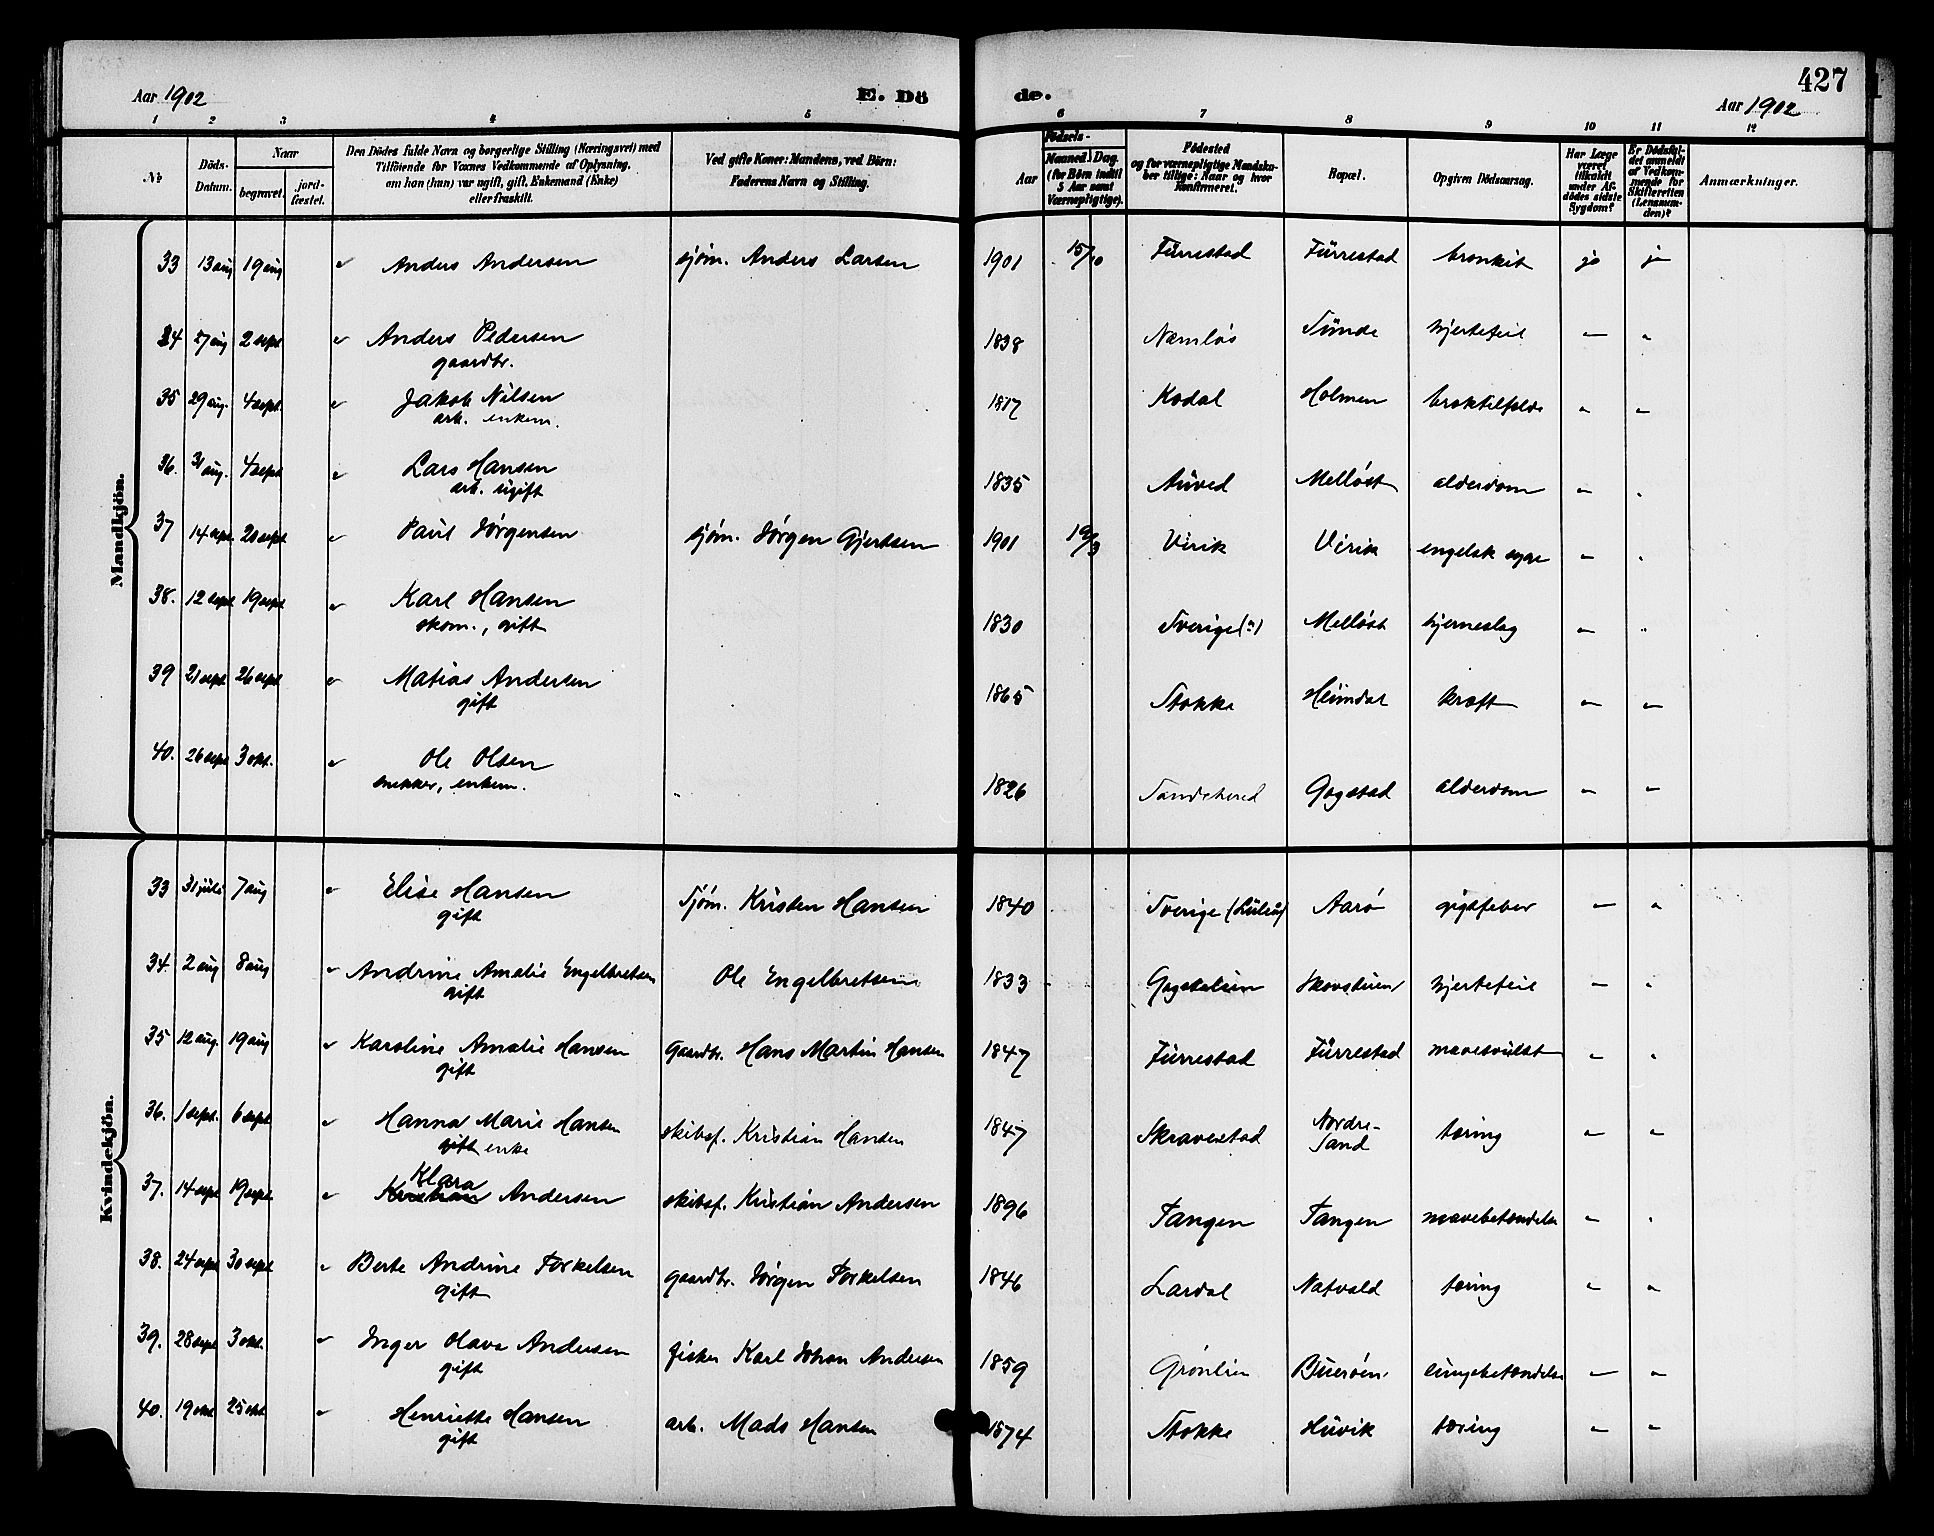 427
Aar 1902 E. Dö de. Aar 1902
1 2 3 4 5 6 7 8 9 10 11 12
No
Döds-Datum.
Naar
begravet.
jord-fæstet.
Den Dödes fulde Navn og borgerlige Stilling (Næringsvei) med
Tilföiende for Voxnes Vedkommende af Oplysning,
om han (hun) var ugift, gift, Enkemand (Enke)
eller fraskilt.
Ved gifte Koner: Mandens, ved Börn:
Faderens Navn og Stilling.
Födsels-
Aar
Maaned. Dag.
(for Börn indtil
5 Aar samt
Værnepligtige).
Födested
og for værnepligtige Mandska-
ber tillige: Naar og hvor
Konfirmeret.
Bopæl.
Opgiven Dödsaarsag.
Har Læge
været
tilkaldt
under Af-
dödes sidste
Sygdom?
Er Dödsfal-
det anmeldt
af Vedkom-
mende for
Skifteretten
(Lensman-
den)?
Anmærkninger.
Mandkjön.
33 13 aug 19 aug Anders Andersen sjøm. Anders Larsen 1901 15/10 Fürrestad Fürrestad bronkit ja ja
34 27 aug 2 sept Anders Pedersen 1838 Namløs Sünde hjertefeil — "
gaardbr.
35 29 aug. 4 sept. Jakob Nilsen 1817 Kodal Holmen broktilfælde " —
arb. enkem.
36. 31 aug. 4 sept Lars Hansen 1835 Aüved Melløst alderdom — "
arb. ügift
37 14 sept. 20 sept Paul Jørgensen sjøm. Jørgen Gjertsen 1901 19/3 Virik Virik engelsk syge — "
38. 12 sept 19 sept Karl Hansen 1830 Sverige(?) Melløst hjerneslag — "
skom., gift
39 21 sept 26 sept Matias Andersen 1865 Stokke Heimdal kræft — —
gift
40. 26 sept 3 okt. Ole Olsen " 1826 Sandeherred Gogstad alderdom " —
snekker, enkem.
Kvindekjön.
33 31 juli 7 aug Elise Hansen Sjøm. Kristen Hansen 1840 Sverige (Lüleå) Aarø gigtfeber — "
gift
34. 2 aug 8 aug Andrine Amalie Engelbretsen Ole Engelbretsen 1833 Gogstad hjertefeil — "
gift
35 12 aug. 19 aug Karoline Amalie Hansen Gaardbr. Hans Martin Hansen 1847 Fürrestad Fürrestad mavesvülst — "
gift
36. 1 sept. 6 sept Hanna Marie Hansen skibsf. Kristian Hansen 1847 Skravestad Nordre-Sand tæring — —
gift enke
37. 14 sept 19 sept. Kristian Klara Andersen skibsf. Kristian Andersen 1896 Tangen Tangen mavebetændelse — "
38. 24 sept 30 sept Berte Andrine Torkelsen gaardbr. Jørgen Torkelsen 1846 Lardal Natvald tæring — "
gift
39. 28 sept 3 okt. Inger Olava Andersen fisker Karl Johan Andersen 1859 Grønlien Buerøen. lungebetændelse — "
gift
40. 19 okt 25 okt Henriette Hansen arb. Mads Hansen 1874 Stokke Hüvik tæring — —
gift